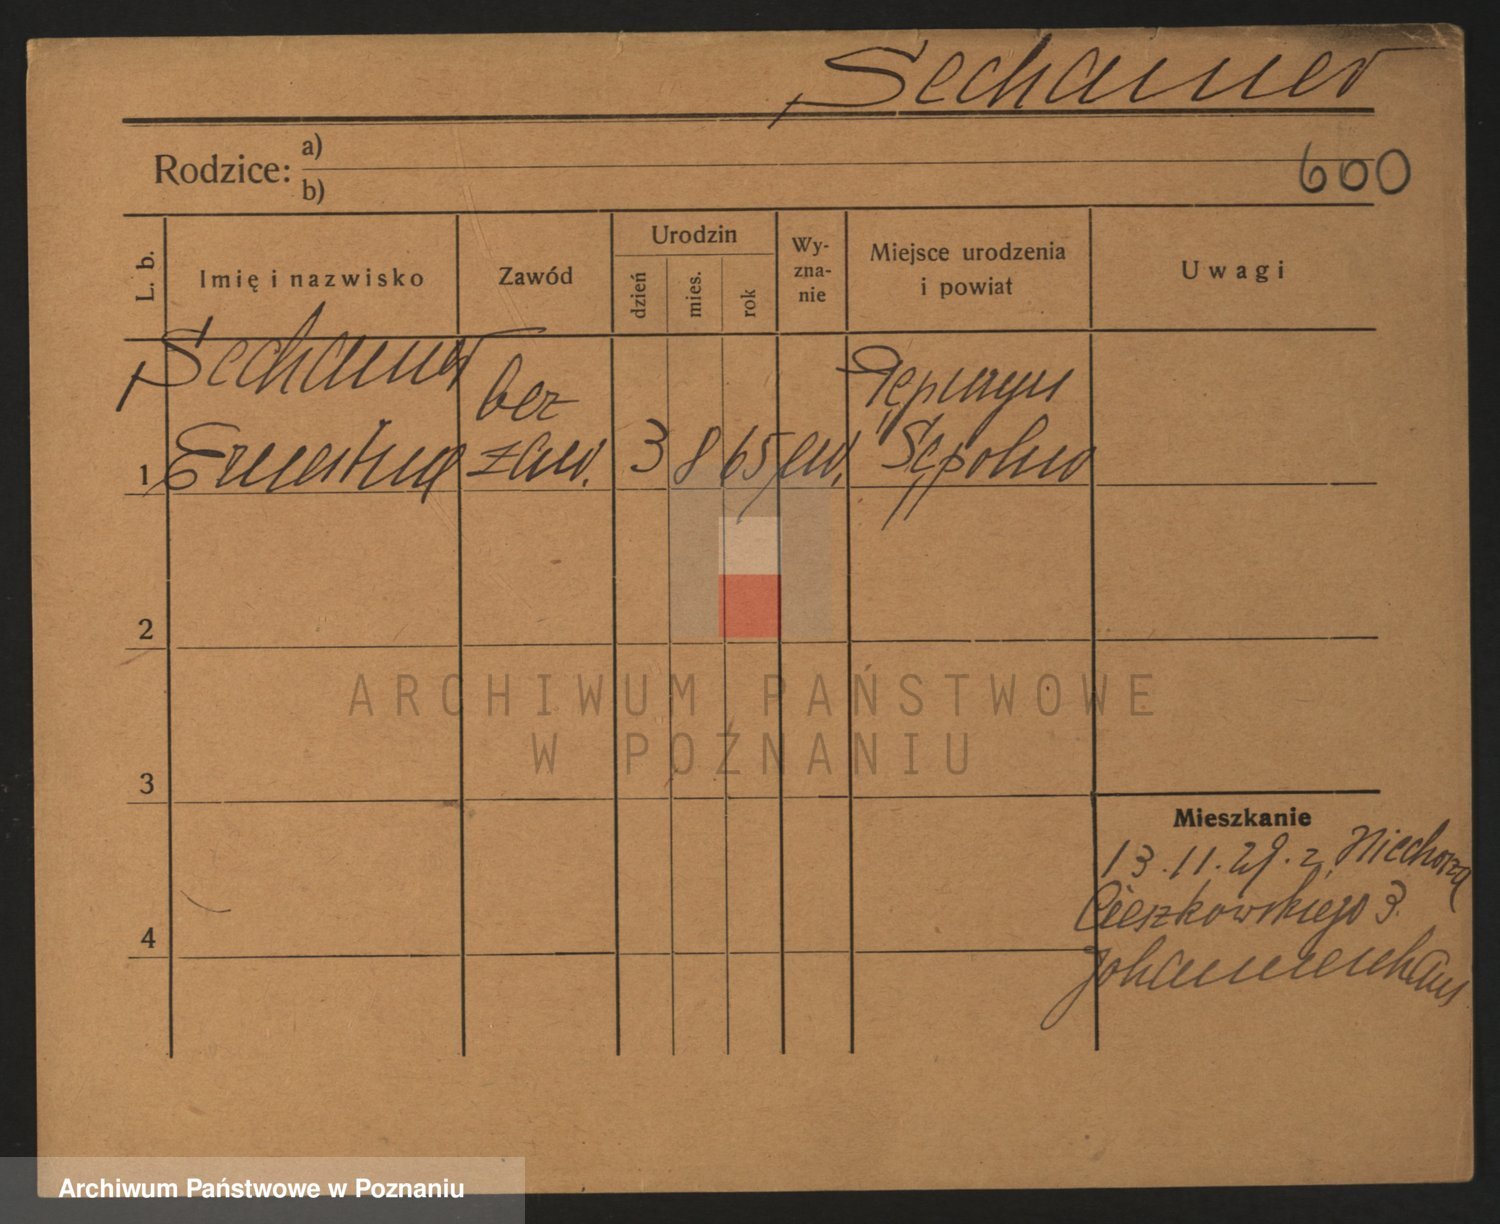 Sechauer
Rodzice: a)
b)
600
L. b.
Imię i nazwisko
Zawód
Urodzin
dzień
mies.
rok
Wy-
zna-
nie
Miejsce urodzenia
i powiat
Uwagi
1
Sechauer
Ernestina
bez
zaw.
3
8
65
ew.
Sępolno
2
3
4
Mieszkanie
13.11.29. z Niechorza
Cieszkowskiego 3.
Johannenhaus
ARCHIWUM PAŃSTWOWE
W POZNANIU
Archiwum Państwowe w Poznaniu